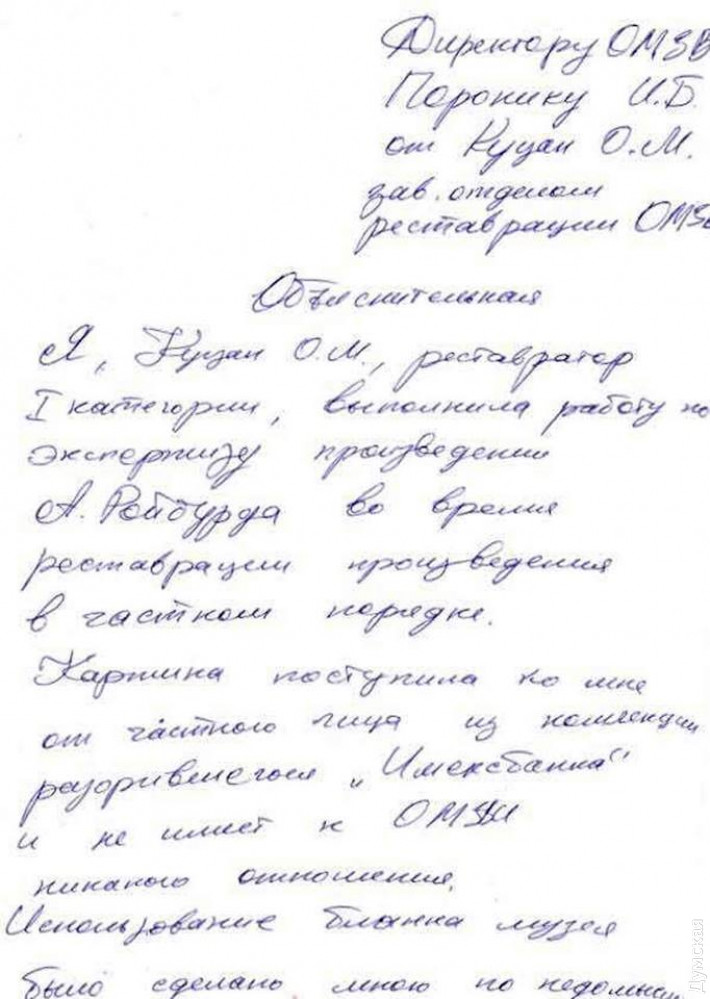 Директору ОМЗВ
Поронику И.Б.
от Куцан О.М.
зав. отделом
реставрации ОМЗВ
Объяснительная
Я, Куцан О.М., реставратор
I категории, выполнила работу по
экспертизу произведении
А. Ройбурда во время
реставрации произведения
в частном порядке.
Картина поступила ко мне
от частного лица из коллекции
разорившегося „Имексбанка"
и не имеет к ОМЗВИ
никакого отношения.
Использование бланка музея
было сделано мною по недомыс
Думская